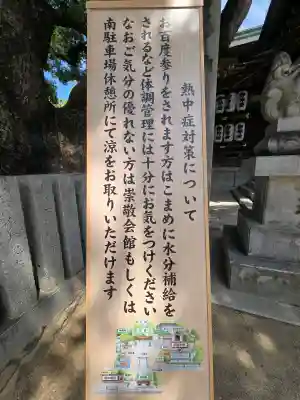 熱中症対策について
お百度参りをされます方はこまめに水分補給を
されるなど体調管理には十分にお気をつけください
なおご気分の優れない方は崇敬会館もしくは
南駐車場休憩所にて涼をお取りいただけます